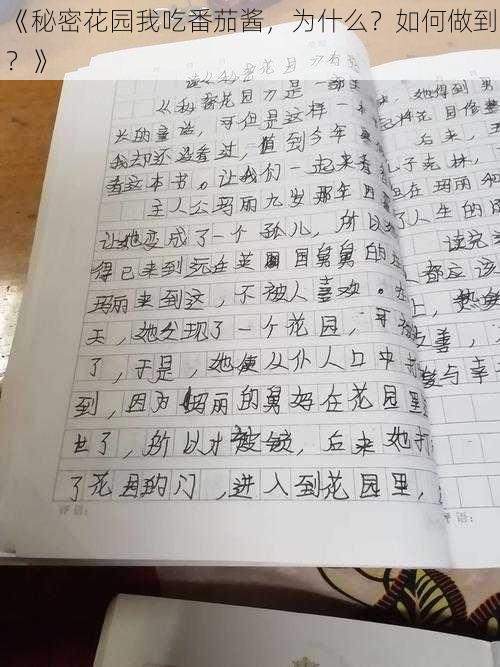 《秘密花园我吃番茄酱，为什么？如何做到
？》
读《秘密花园》有感
《秘密花园》是一部
长的童话，可但是这样一
我却还没看过，直到今年
看这本书。让我们一起来看
主人公玛丽九岁那年因
让她变成了一个孤儿，所以
得已来到远在英国舅舅的
玛丽来到这，不被人喜欢。在
天，她发现了一个花园，可
了，于是，她便从仆人口中
到，因为玛丽的舅好在花园里
世了，所以才被锁，后来她打
了花园的门，进入到花园里，
评语：
，她得到
花园修整
后来，
儿子克林，
且在玛丽和
了人生的
读完
人都应该
上，热
善，
爱与幸
评语：